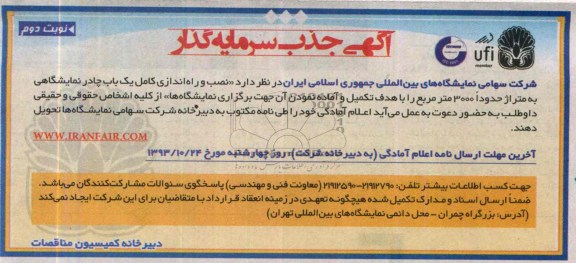 نوبت دوم
آگهی جذب سرمایه گذار
ufi
member
شرکت سهامی نمایشگاه‌های بین‌المللی جمهوری اسلامی ایران در نظر دارد «نصب و راه‌اندازی کامل یک باب چادر نمایشگاهی
به متراژ حدوداً ۳۰۰۰ متر مربع را با هدف تکمیل و آماده نمودن آن جهت برگزاری نمایشگاه‌ها» از کلیه اشخاص حقوقی و حقیقی
داوطلب به حضور دعوت به عمل می‌آید اعلام آمادگی خود را طی نامه مکتوب به دبیرخانه شرکت سهامی نمایشگاه‌ها تحویل
دهند.
WWW.IRANFAIR.COM
آخرین مهلت ارسال نامه اعلام آمادگی (به دبیرخانه شرکت): روز چهارشنبه مورخ ۱۳۹۳/۱۰/۲۴
جهت کسب اطلاعات بیشتر تلفن: ۲۱۹۱۲۷۹۰-۲۱۹۱۲۵۹۰ (معاونت فنی و مهندسی) پاسخگوی سئوالات مشارکت‌کنندگان می‌باشد.
ضمناً ارسال اسناد و مدارک تکمیل شده هیچگونه تعهدی در زمینه انعقاد قرارداد با متقاضیان برای این شرکت ایجاد نمی‌کند
(آدرس: بزرگراه چمران - محل دائمی نمایشگاه‌های بین‌المللی تهران)
دبیرخانه کمیسیون مناقصات